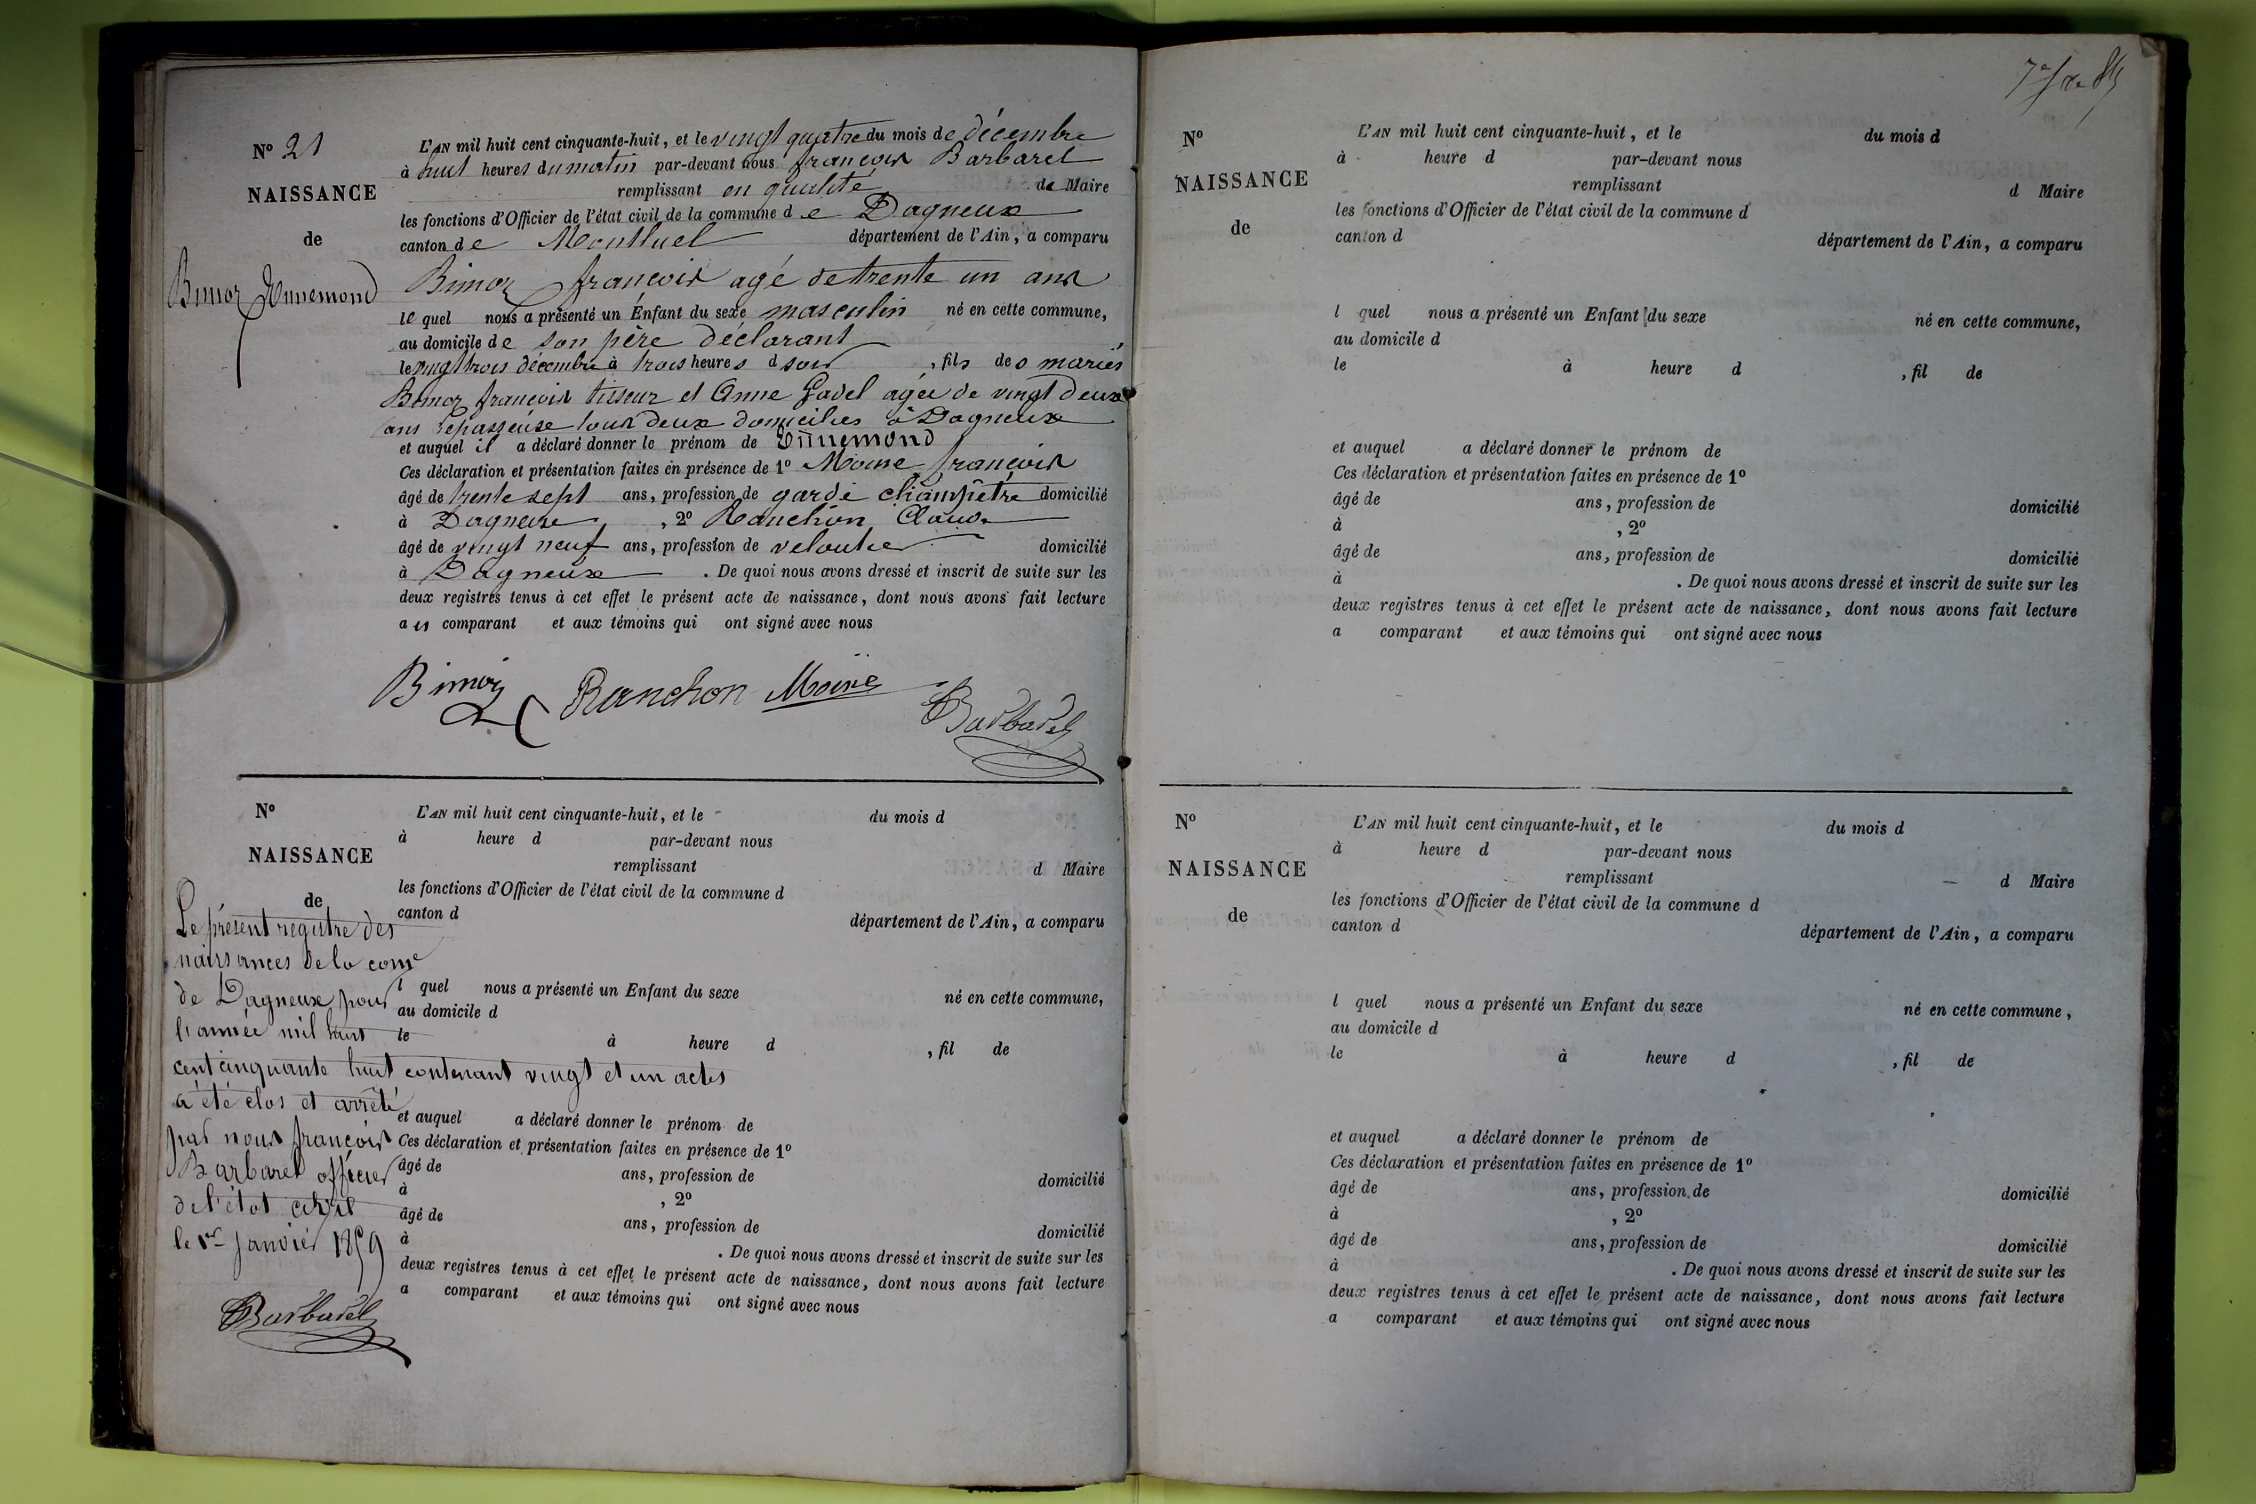 N° 21
NAISSANCE
de
Bimoz Ennemond
L'AN mil huit cent cinquante-huit, et le vingt quatre du mois de décembre
à huit heures du matin par-devant nous françois Barbarel
remplissant en qualité de Maire
les fonctions d'Officier de l'état civil de la commune de Dagneux
canton de Montluel département de l'Ain, a comparu
Bimoz françois agé de trente un ans
lequel nous a présenté un Enfant du sexe masculin né en cette commune,
au domicile de son père déclarant
le vingt trois décembre à trois heures d soir , fils des mariés
Bimoz françois tisseur et Anne Gadel agée de vingt deux
ans repasseuse tous deux domiciliés à Dagneux
et auquel il a déclaré donner le prénom de Ennemond
Ces déclaration et présentation faites en présence de 1° Moine françois
âgé de trente sept ans, profession de garde champêtre domicilié
à Dagneux , 2° Ranchon Claude
âgé de vingt neuf ans, profession de veloutier domicilié
à Dagneux . De quoi nous avons dressé et inscrit de suite sur les
deux registres tenus à cet effet le présent acte de naissance, dont nous avons fait lecture
au comparant et aux témoins qui ont signé avec nous
Bimoz Ranchon Moine Barbarel
N°
NAISSANCE
de
L'AN mil huit cent cinquante-huit, et le du mois d
à heure d par-devant nous
remplissant d Maire
les fonctions d'Officier de l'état civil de la commune d
canton d département de l'Ain, a comparu
l quel nous a présenté un Enfant du sexe né en cette commune,
au domicile d
le à heure d , fil de
et auquel a déclaré donner le prénom de
Ces déclaration et présentation faites en présence de 1°
âgé de ans, profession de domicilié
à , 2°
âgé de ans, profession de domicilié
à . De quoi nous avons dressé et inscrit de suite sur les
deux registres tenus à cet effet le présent acte de naissance, dont nous avons fait lecture
a comparant et aux témoins qui ont signé avec nous
Le présent registre des
naissances de la come
de Dagneux pour
l'année mil huit
cent cinquante huit contenant vingt et un actes
a été clos et arrêté
par nous françois
Barbarel officier
de l'état civil
le 1er Janvier 1859
Barbarel
N°
NAISSANCE
de
L'AN mil huit cent cinquante-huit, et le du mois d
à heure d par-devant nous
remplissant d Maire
les fonctions d'Officier de l'état civil de la commune d
canton d département de l'Ain, a comparu
l quel nous a présenté un Enfant du sexe né en cette commune,
au domicile d
le à heure d , fil de
et auquel a déclaré donner le prénom de
Ces déclaration et présentation faites en présence de 1°
âgé de ans, profession de domicilié
à , 2°
âgé de ans, profession de domicilié
à . De quoi nous avons dressé et inscrit de suite sur les
deux registres tenus à cet effet le présent acte de naissance, dont nous avons fait lecture
a comparant et aux témoins qui ont signé avec nous
N°
NAISSANCE
de
L'AN mil huit cent cinquante-huit, et le du mois d
à heure d par-devant nous
remplissant d Maire
les fonctions d'Officier de l'état civil de la commune d
canton d département de l'Ain, a comparu
l quel nous a présenté un Enfant du sexe né en cette commune,
au domicile d
le à heure d , fil de
et auquel a déclaré donner le prénom de
Ces déclaration et présentation faites en présence de 1°
âgé de ans, profession de domicilié
à , 2°
âgé de ans, profession de domicilié
à . De quoi nous avons dressé et inscrit de suite sur les
deux registres tenus à cet effet le présent acte de naissance, dont nous avons fait lecture
a comparant et aux témoins qui ont signé avec nous